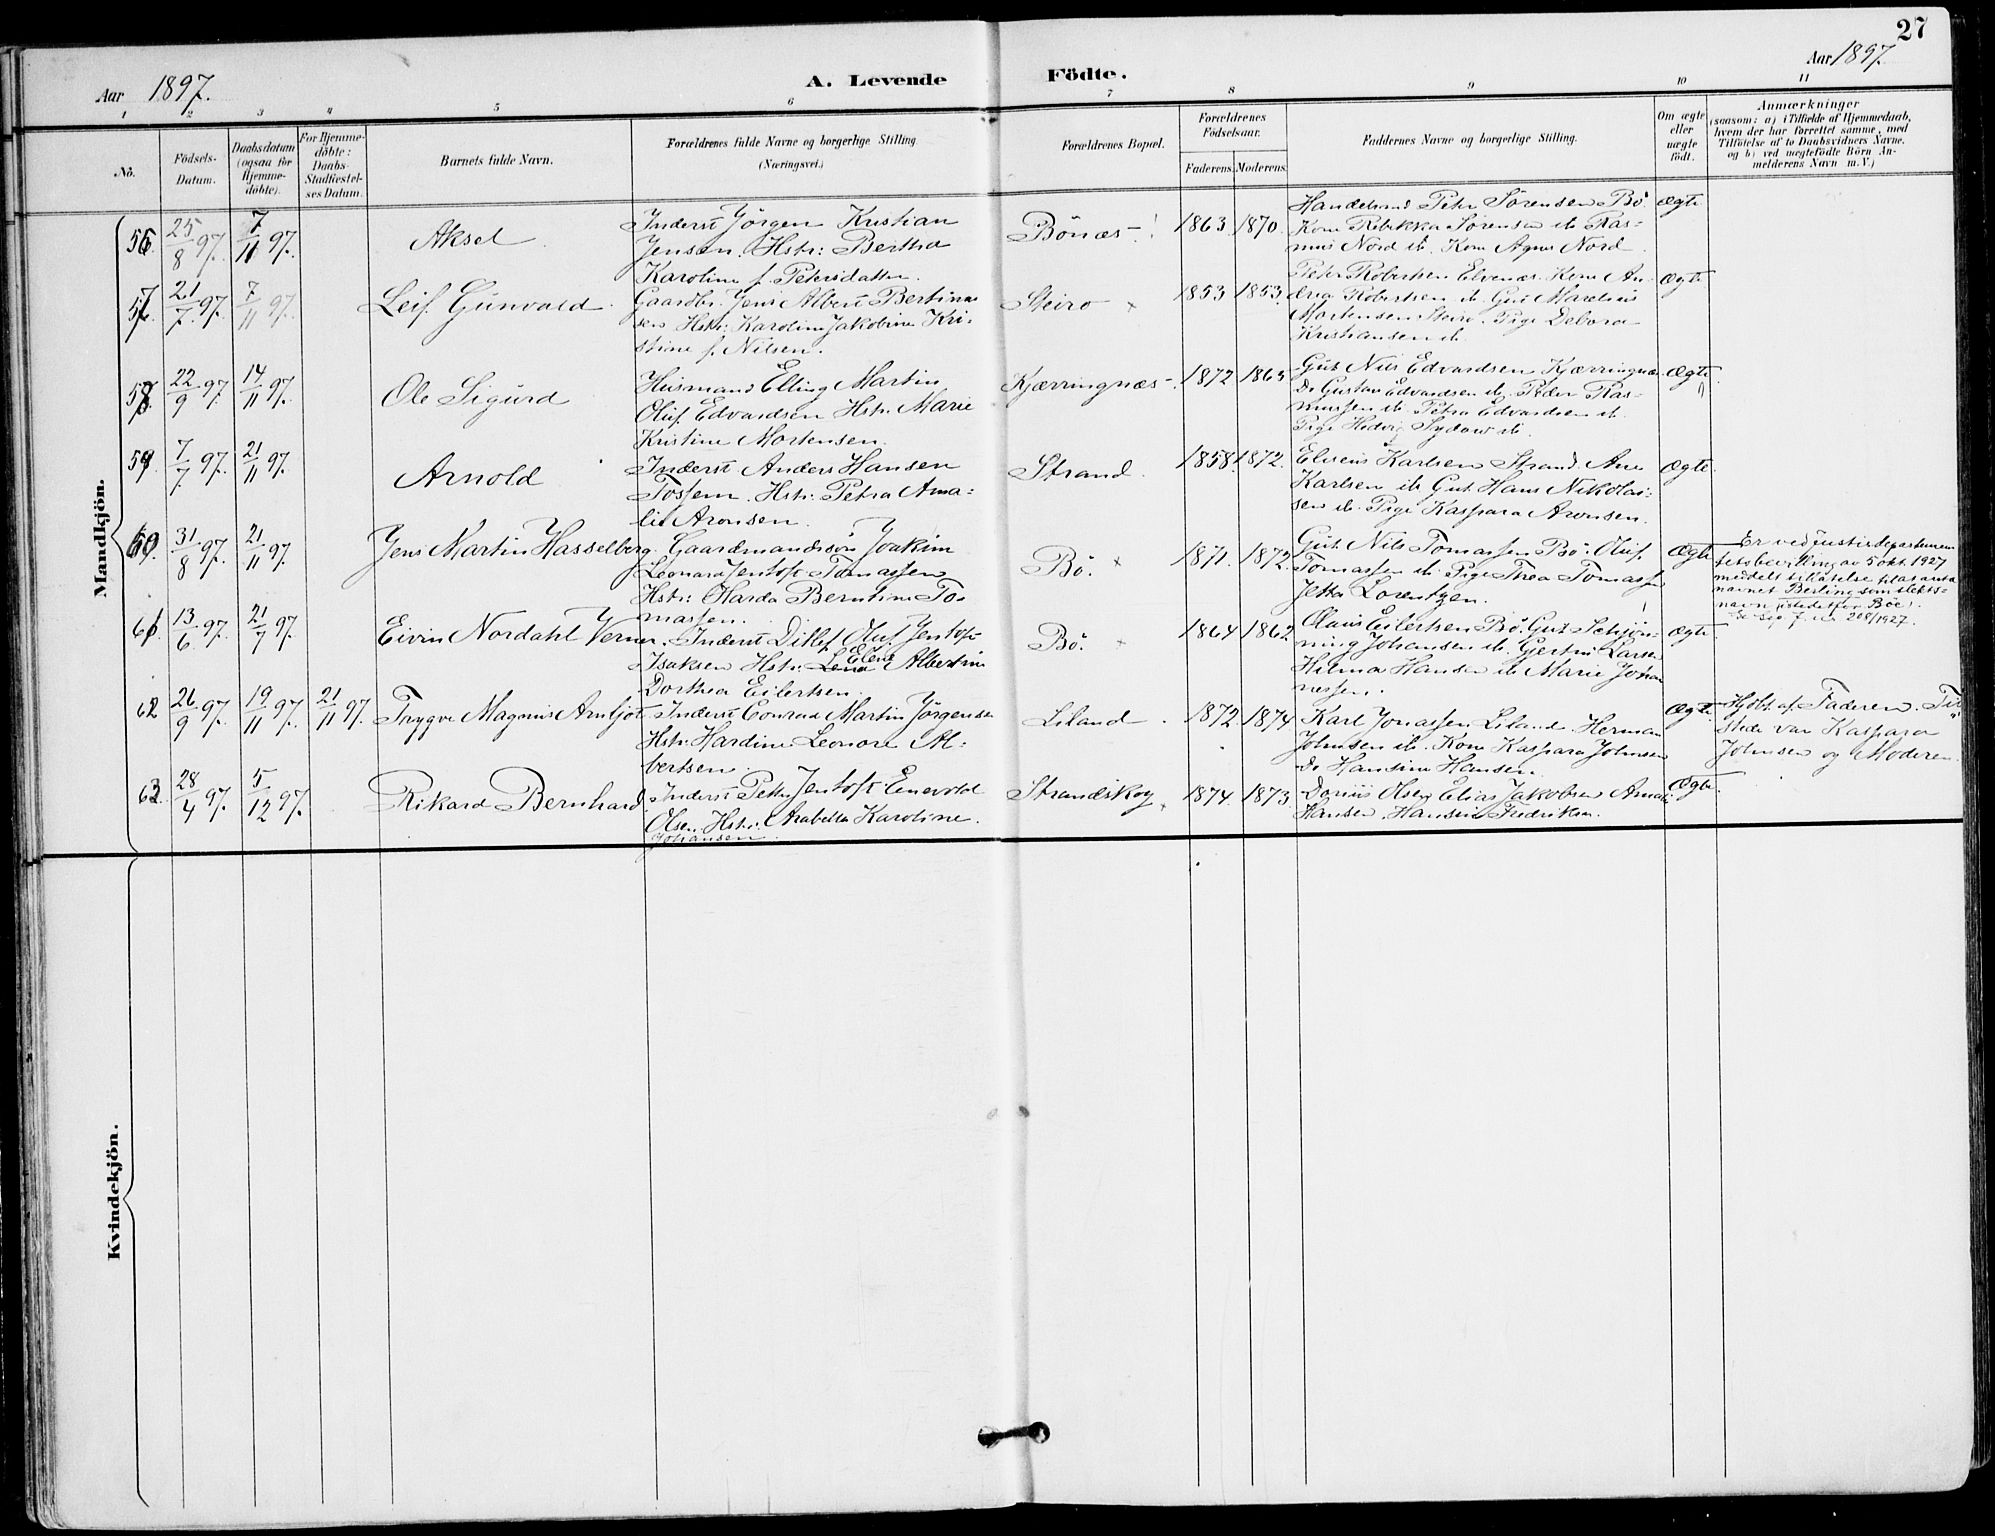 27
Aar 1897.
A. Levende Födte.
Aar 1897.
1 2 3 4 5 6 7 8 9 10 11
No.
Födsels-
Datum.
Daabsdatum
(ogsaa for
Hjemme-
döbte).
For Hjemme-
döbte:
Daabs-
Stadfæstel-
ses Datum.
Barnets fulde Navn.
Forældrenes fulde Navne og borgerlige Stilling
(Næringsvei.)
Forældrenes Bopæl.
Forældrenes
Födselsaar.
Faderens. Moderens.
Faddernes Navne og borgerlige Stilling.
Om ægte
eller
uægte
födt.
Anmærkninger
(saasom: a) i Tilfælde af Hjemmedaab,
hvem der har forrettet samme, med
Tilföielse af to Daabsvidners Navne,
og b) ved uægtefödte Börn An-
melderens Navn m. V.)
Mandkjön.
56 25/8 97. 7/11 97.
Aksel
Inderst Jörgen Kristian
Jensen. Hstr: Bertha
Karoline f. Petersdatter.
Bönæs
1863 1870.
Handelsmd Peter Sörensen Bö
Kone Rebekka Sörensen ib. Ras-
mus Nord ib. Kone Agnes Nord
Ægte
57. 21/7 97. 7/11 97.
Leif Gunvald
Gaardbr. Jens Albert Bertinus-
sen Hstr: Karoline Jakobine Kri-
stine f. Nilsen.
Steiro
1853 1853.
Peter Robertsen Elvenæs. Kone An-
drea Robertsen ib. Gut Marelius
Mortensen Steiro. Pige Debora
Kristiansen ib.
Ægte
58. 22/9 97. 14/11 97.
Ole Sigurd
Husmand Elling Martin
Oluf Edvardsen Hstr. Marie
Kristine Mortensen.
Kjærringnæs
1872 1865
Gut Nils Edvardsen Kjærringnæs
Do Gustav Edvardsen ib. Peder Ras-
mussen ib. Petra Edvardsen ib.
Pige Hedvig Sydow ib.
Ægte
59 7/7 97. 21/11 97.
Arnold
Inderst Anders Hansen
Tossem. Hstr: Petra Ama-
lie Aronsen.
Strand.
1858 1872.
Eliseus Karlsen Strand. Ane
Karlsen ib. Gut Hans Nikolai-
sen ib. Pige Kaspara Aronsen.
Ægte.
60. 31/8 97. 21/11 97.
Jens Martin Hasselberg.
Gaardmandssön Joakim
Leonard Jentoft Tomassen
Hstr: Harda Berntine To-
massen.
Bö.
1871. 1872.
Gut. Nils Tomassen Bö. Oluf
Tomassen ib. Pige Thea Tomassen
Jetta Lorentzen.
Ægte
Er ved justisdepartemen-
tets bevilling av 5 okt. 1927
meddelt tillatelse til at anta
navnet Berling som slekts-
navn istedetfor Böe.
Se sig. j. nr 208/1927.
61 13/6 97. 21/7 97.
Eivin Nordahl Verner.
Inderst Ditlef Oluf Jentoft
Isaksen Hstr: Lena Elene Albertine
Dorthea Eilertsen.
Bö.
1864 1862
Olaus Eilertsen Bö. Gut Schjön-
ning Johansen ib. Gjertine Larsen
Hilma Hansen ib. Marie Johan-
nessen.
Ægte.
62 26/9 97. 19/11 97. 21/11 97.
Trygve Magnus Arnljot.
Inderst Conrad Martin Jörgensen
Hstr: Hardine Leonore Al-
bertsen.
Liland
1872 1874
Karl Jonassen Liland. Herman
Johnsen ib. Kone Kaspara Johnsen
Do Hansine Hansen.
Ægte.
Hjdbt. af Faderen. Til-
stede var Kaspara
Johnsen og Moderen.
63. 28/4 97. 5/12 97.
Rikard Bernhard
Inderst Peter Jentoft Enevold
Olsen Hstr: Arabella Karoline
Johansen.
Strandskog
1874. 1873.
Dorius Olsen Elias Jakobsen Amalie
Hansen. Hansine Fredriksen.
Ægte.
Kvindekjön.